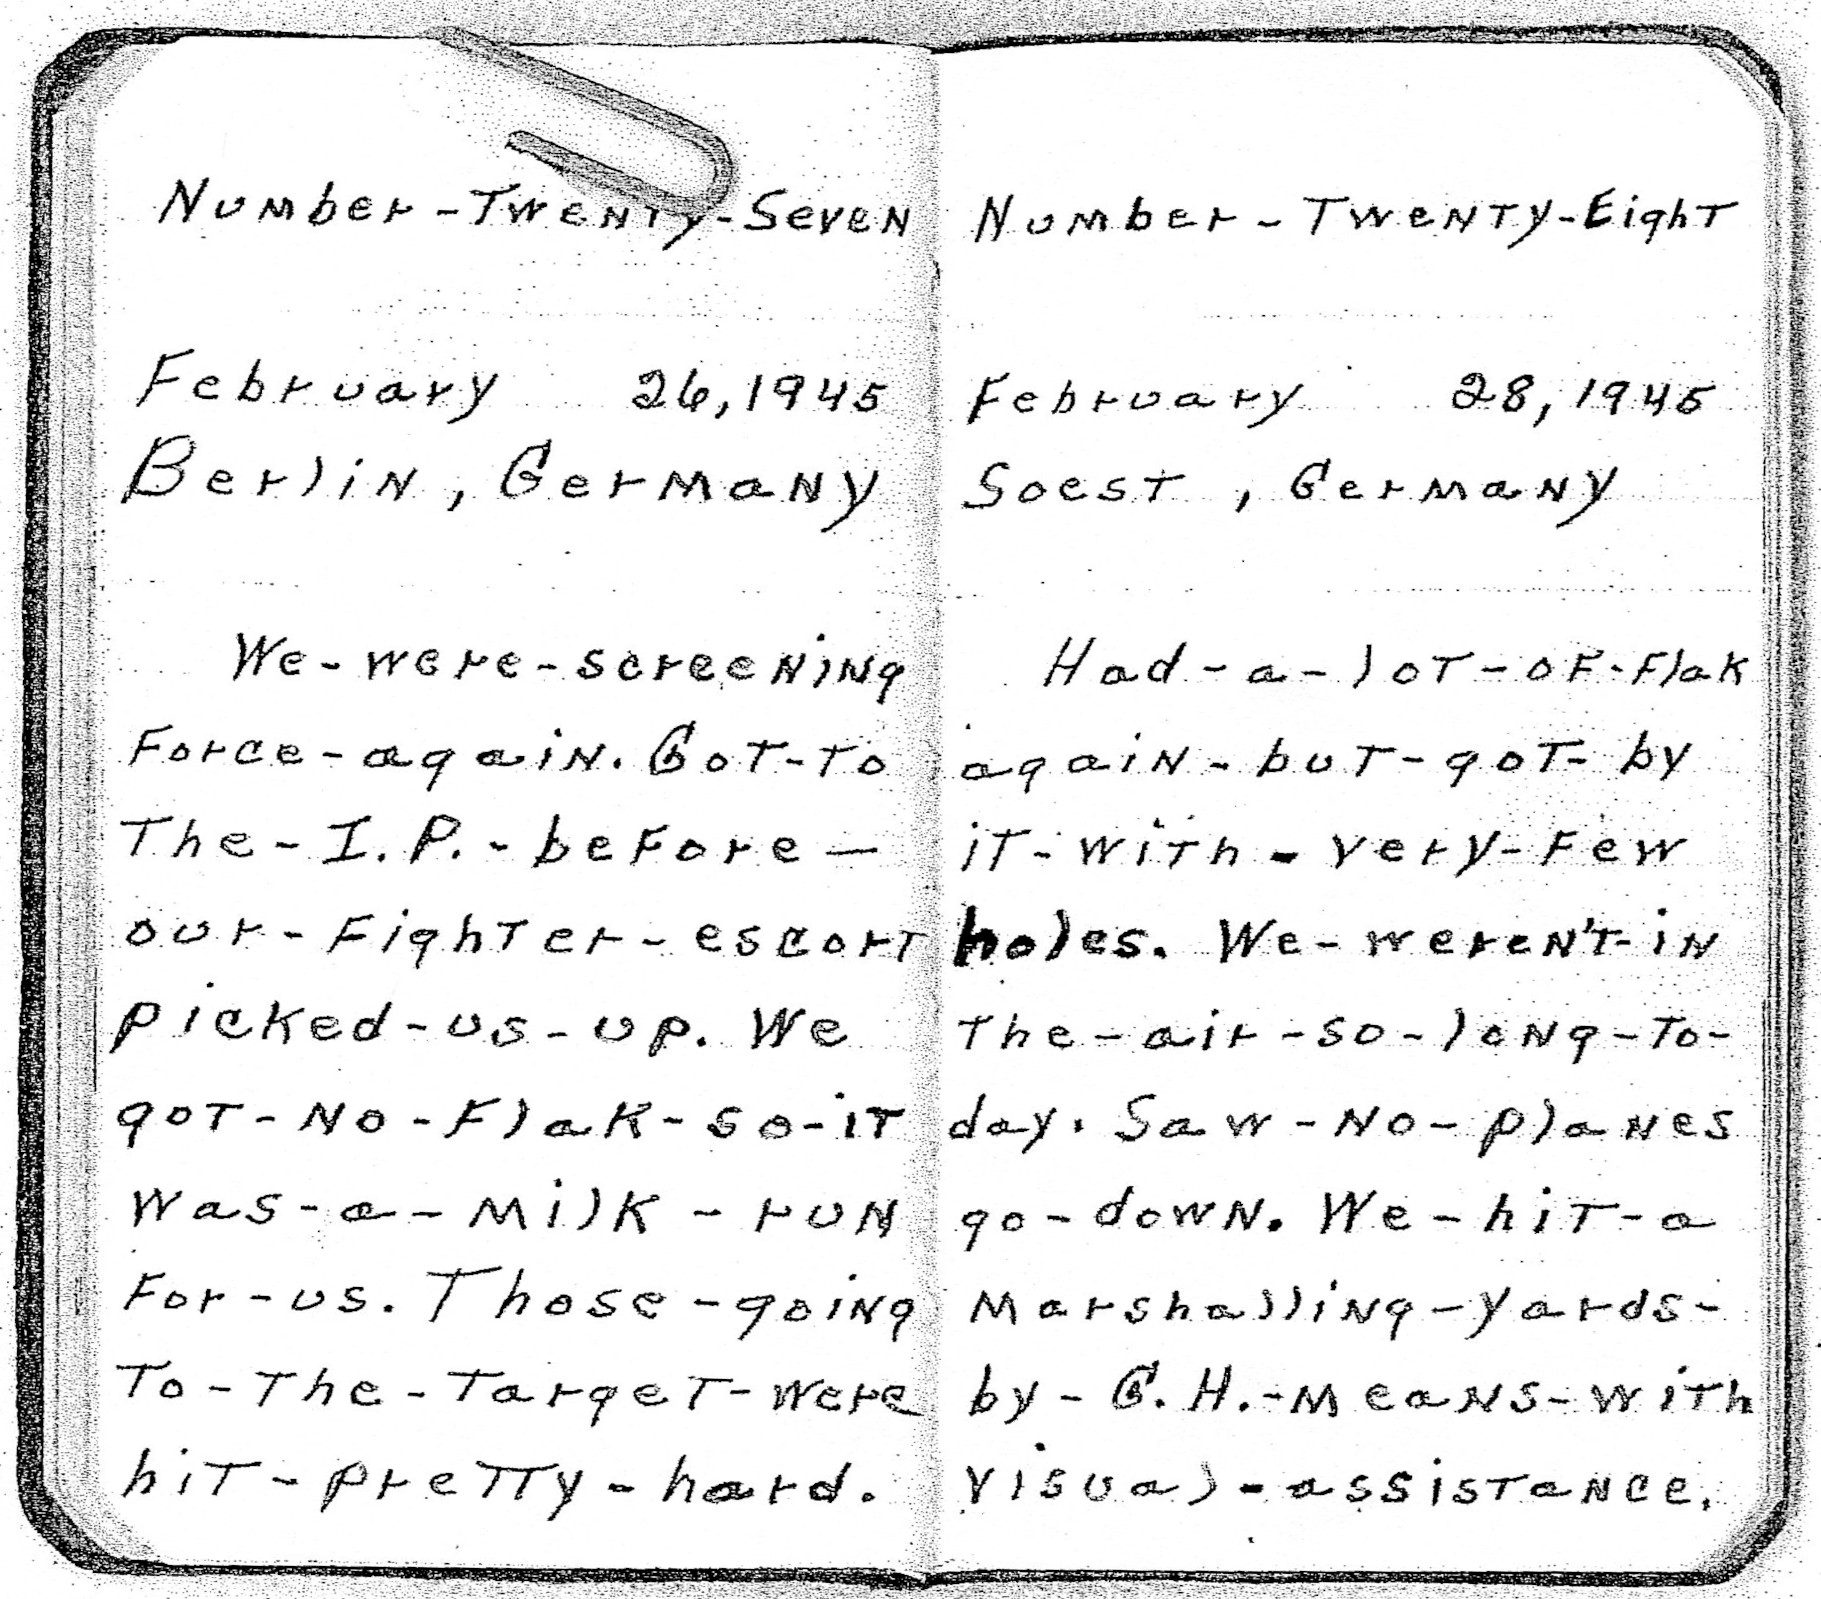 Number-Twenty-Seven
February 26, 1945
Berlin, Germany
We-were-screening
Force-again. Got-to
The-I.P.-before—
our-Fighter-escort
picked-us-up. We
got-No-Flak-so-it
was-a-Milk-run
For-us. Those-going
To-The-Target-were
hit-pretty-hard.
Number-Twenty-Eight
February 28, 1945
Soest, Germany
Had-a-lot-of-Flak
again-but-got-by
it-with-very-Few
holes. We-weren't-in
The-air-so-long-To-
day. Saw-No-planes
go-down. We-hit-a
Marshalling-yards-
by-G.H.-Means-with
visual-assistance.